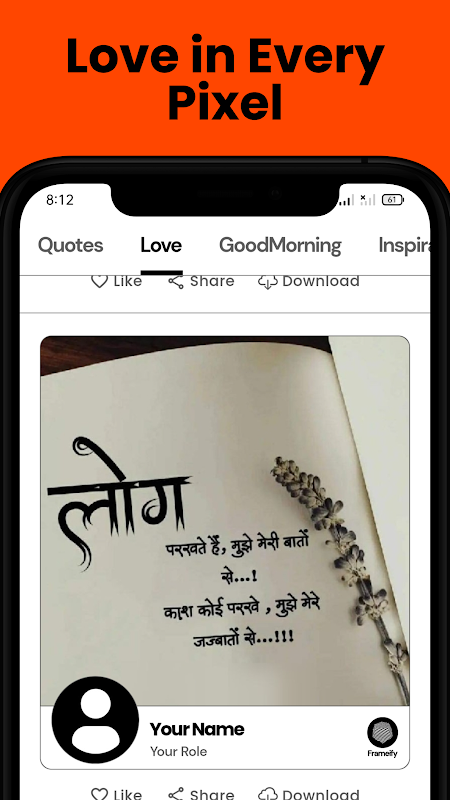 Love in Every
Pixel
8:12
61
Quotes Love GoodMorning Inspira
Like Share Download
लोग
परखते हैं, मुझे मेरी बातों
से...!
काश कोई परखे , मुझे मेरे
जज्बातों से...!!!
Your Name
Your Role
Frameify
Like Share Download